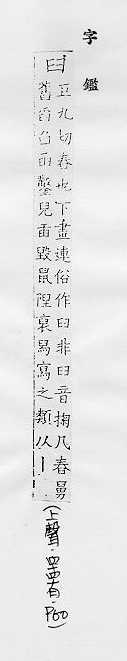 字鑑
臼
巨九切舂也下畫連俗作臼非臼音掬凡舂舁
舊舀臽臿鑿兒毀鼠陧舄寫之類从
(上聲.四四有.P60)